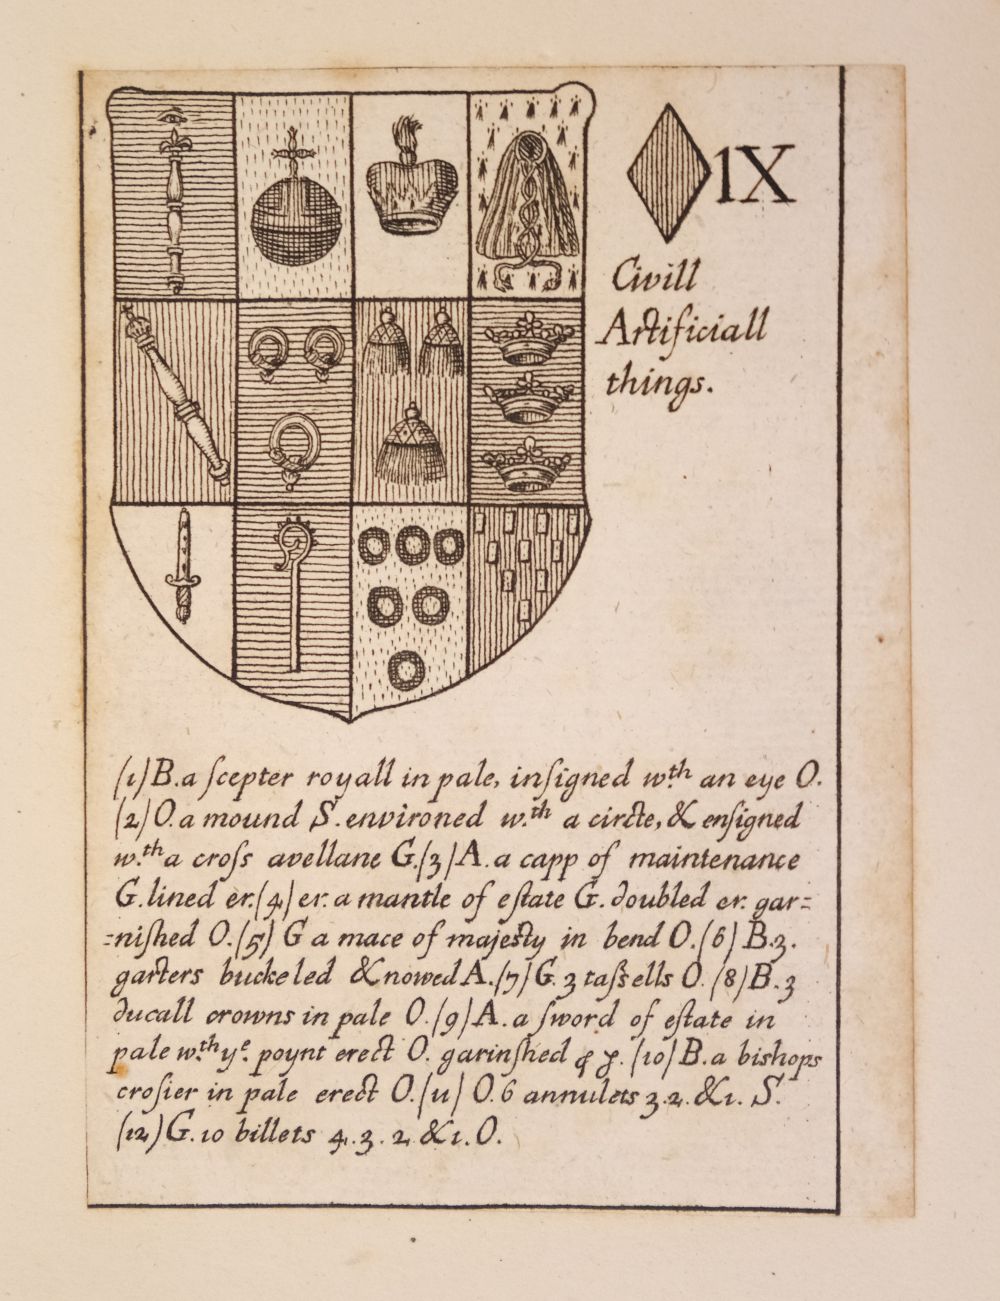 IX
Civill
Artificiall
things.
(1) B. a ſcepter royall in pale, inſigned w.th an eye O.
(2) O. a mound S. environed w.th a circte, & enſigned
w.th a croſs avellane G. (3) A. a capp of maintenance
G. lined er. (4) er. a mantle of eſtate G. doubled er. gar=
=niſhed O. (5) G a mace of majeſty in bend O. (6) B. 3.
garters buckeled & nowed A. (7) G. 3 taſsells O. (8) B. 3
ducall crowns in pale O. (9) A. a ſword of eſtate in
pale w.th ye. poynt erect O. garinſhed (10) B. a bishops
croſier in pale erect O. (11) O. 6 annulets 3. 2. & 1. S.
(12) G. 10 billets 4. 3. 2 & 1. O.